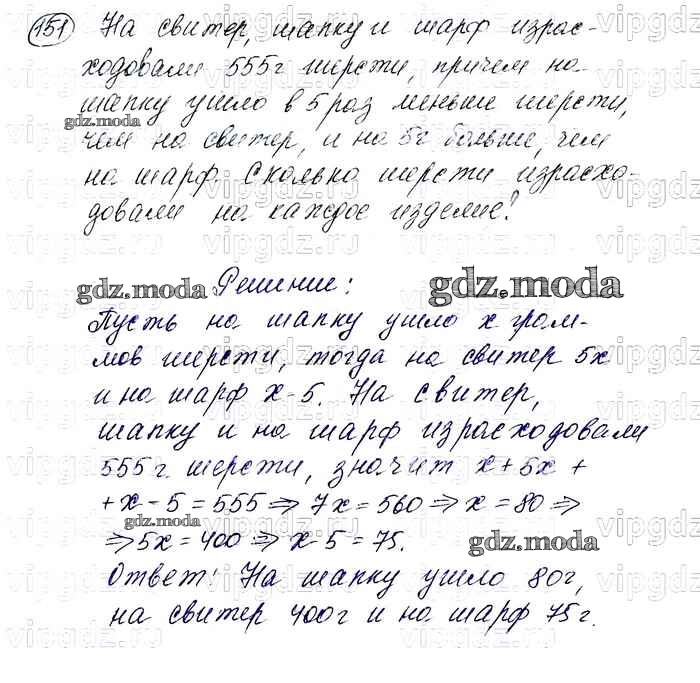 151 На свитер, шапку и шарф израс-
ходовали 555г шерсти, причем на
шапку ушло в 5 раз меньше шерсти,
gdz.moda
чем на свитер, и на 5г больше, чем
на шарф. Сколько шерсти израсхо-
довали на каждое изделие?
gdz.moda Решение: gdz.moda
Пусть на шапку ушло x грам-
мов шерсти, тогда на свитер 5x
и на шарф x-5. На свитер,
шапку и на шарф израсходовали
555г. шерсти, значит x+5x+
+x-5=555 ⇒ 7x=560 ⇒ x=80 ⇒
gdz.moda
⇒ 5x=400 ⇒ x-5=75. gdz.moda
Ответ: На шапку ушло 80г,
на свитер 400г и на шарф 75г.